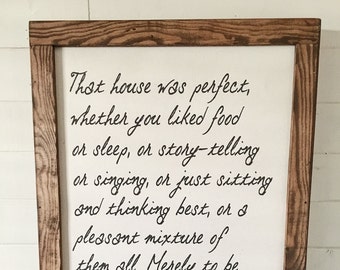 That house was perfect,
whether you liked food
or sleep, or story-telling
or singing, or just sitting
and thinking best, or a
pleasant mixture of
them all. Merely to be